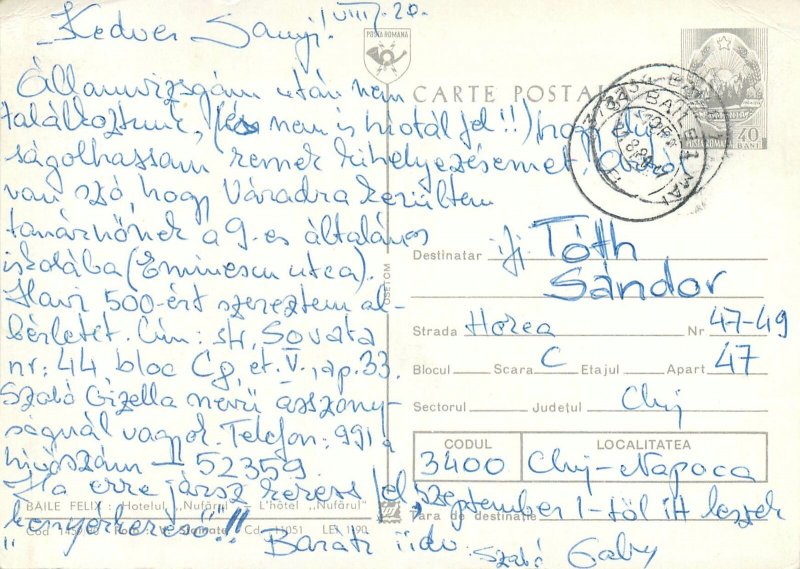 Kedves Sanyi! VIII. 20.
Államvizsgám után nem
találkoztunk, (és nem is hívtál fel!!) hogy dú-
ságolhassam remek kihelyezésemet.
van szó, hogy Váradra kerültem
tanárnőnek a 9-es általános
iskolába (Eminescu utca).
Havi 500-ért szereztem al-
bérletet. Cím: str. Sovata
nr: 44 bloc C9, et. V., ap. 33.
Szabó Gizella nevű asszony-
ságnál vagyok. Telefon: 991 a
hívószám — 52359.
Ha erre jársz keress fel, szeptember 1-től itt leszek
"kenyérkereső"!!
Baráti üdv. Szabó Gaby
POSTA ROMANA
CARTE POSTALA
POSTA ROMANA
40
BANI
BAILE 1 MAI
Destinatar ifj. Tóth
Sándor
Strada Horea Nr 47-49
Blocul Scara C Etajul Apart 47
Sectorul Județul Cluj
CODUL LOCALITATEA
3400 Cluj-Napoca
Țara de destinație
BAILE FELIX: Hotelul „Nufărul" — L'hôtel „Nufărul"
LEI 1,90